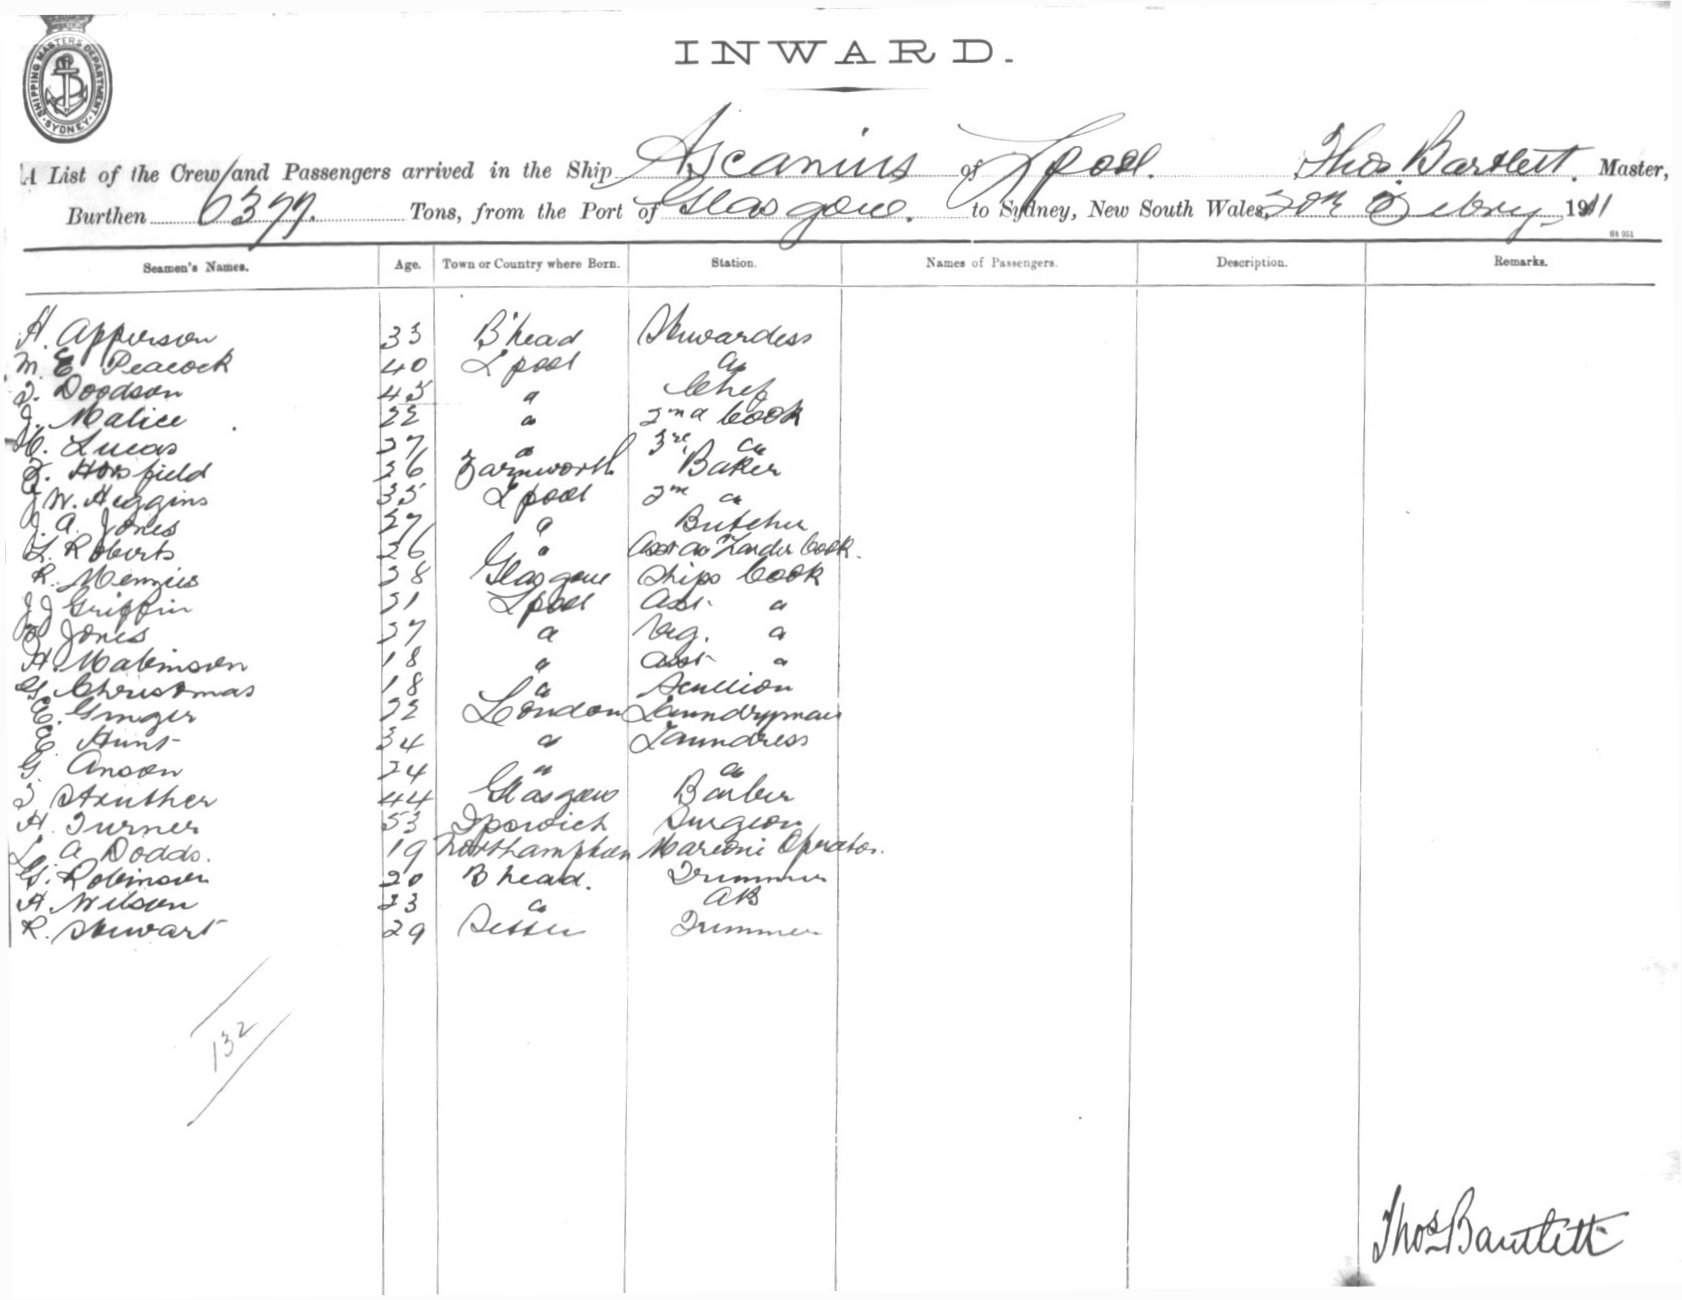 SHIPPING MASTERS DEPARTMENT · SYDNEY ·
INWARD.
A List of the Crew and Passengers arrived in the Ship Ascanius of Lpool. Thos Bartlett. Master,
Burthen 6377. Tons, from the Port of Glasgow. to Sydney, New South Wales, 20th Febry 1911
Seamen's Names. Age. Town or Country where Born. Station. Names of Passengers. Description. Remarks.
H. Apperson 33 B'head Stewardess
M. E. Peacock 40 Lpool "
T. Doodson 45 " Chef
J. Malice 22 " 2nd Cook
Lucas 27 " 3rd "
Horsfield 26 Farnworth Baker
J W. Huggins 35 Lpool 2nd "
J. A. Jones 27 " Butcher
L. Roberts 26 " Larder Cook.
R. Menzies 38 Glasgow Ships Cook
J J Griffin 31 Lpool Asst. "
Jones 37 " Veg. "
H Makinson 18 " Asst "
G. Christmas 18 " Scullion
E. Ginger 32 London Laundryman
E. Hunt 34 " Laundress
G. Anson 24 " "
J Struther 44 Glasgow Barber
H. Turner 53 Ipswich Surgeon
L. A Dodds. 19 Northampton Marconi Operator.
G. Robinson 20 B head. Trimmer
H. Wilson 23 " AB
R. Stewart 29 Trimmer
132
Thos Bartlett